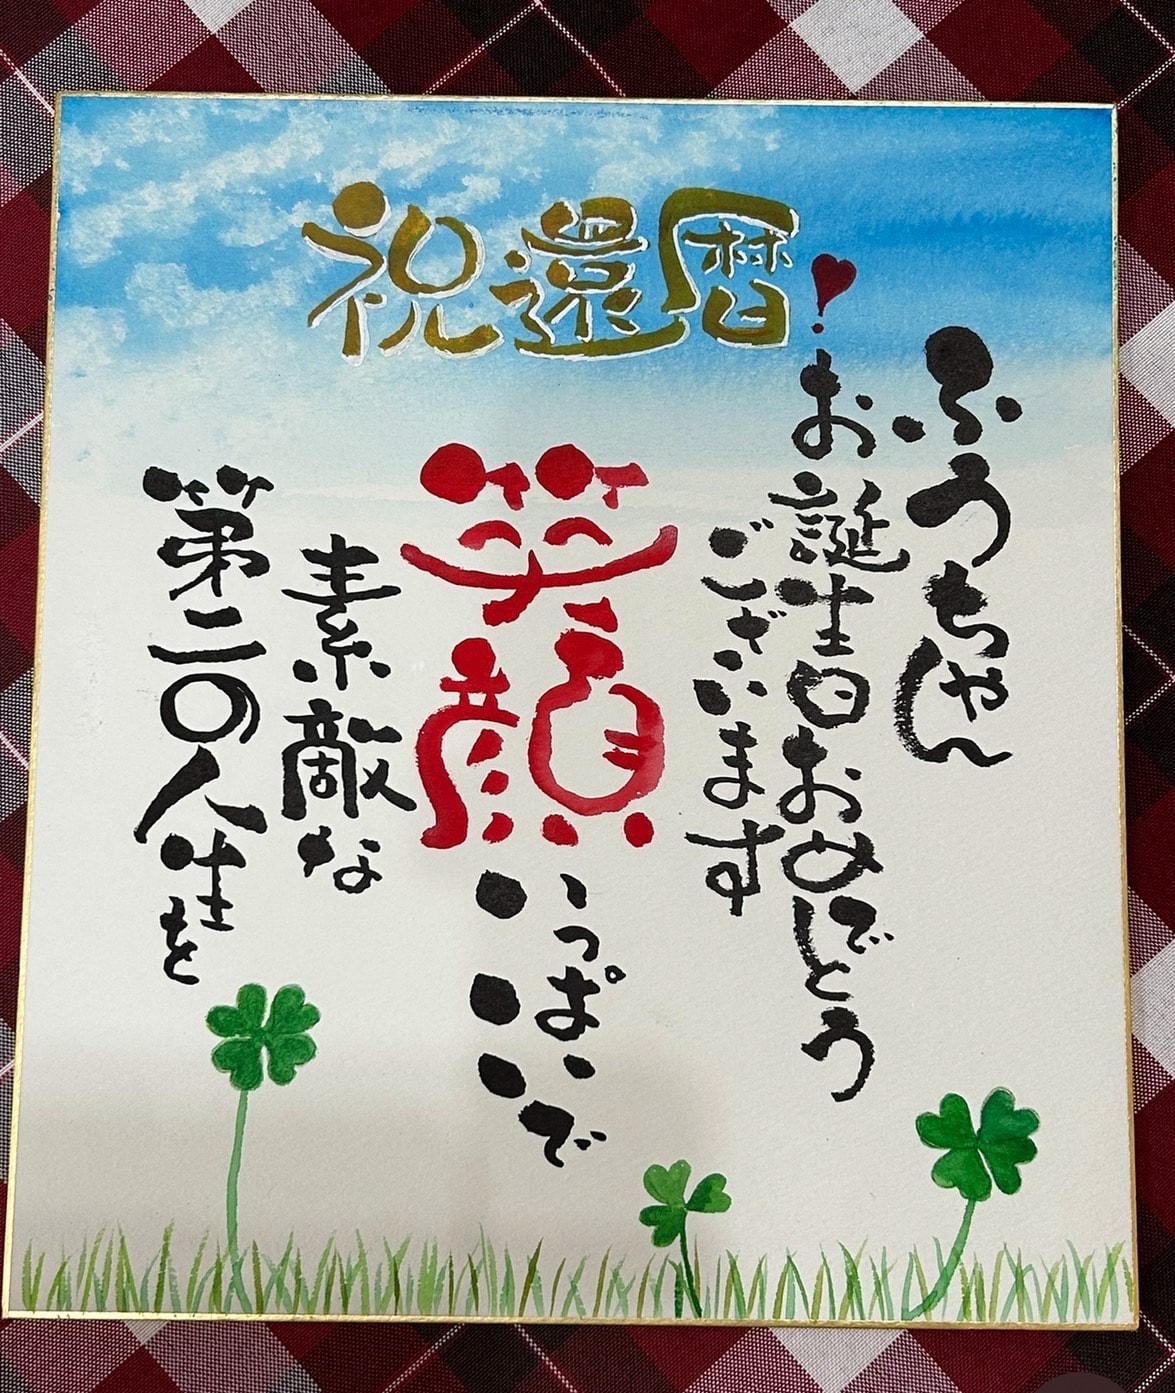 祝還暦!
ふうちゃん
お誕生日おめでとう
ございます
笑顔いっぱいで
素敵な
第二の人生を